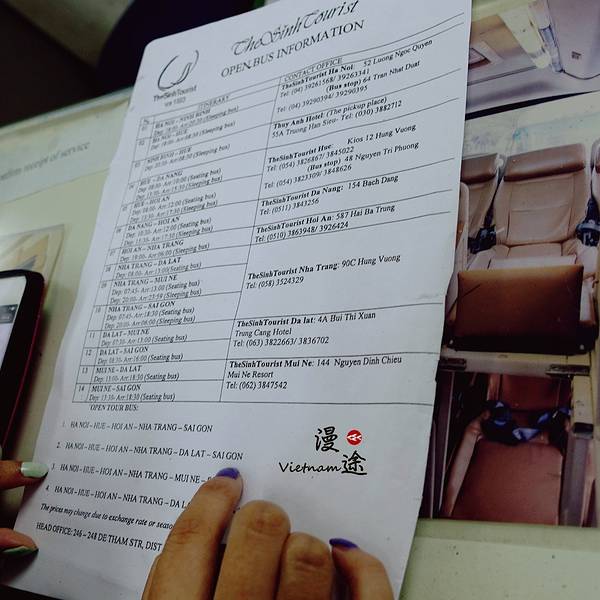 TheSinhTourist
OPEN BUS INFORMATION
TheSinhTourist
confirm receipt of service
No ITINERARY
CONTACT OFFICE
01 HA NOI – NINH BINH
HA NOI – HUE
NINH BINH – HUE
HUE – DA NANG
HUE – HOI AN
DA NANG – HOI AN
HOI AN – NHA TRANG
Dep: 19:00- Arr:06:00 (Sleeping bus)
08 NHA TRANG – DA LAT
Dep: 08:00- Arr:13:00 (Seating bus)
09 NHA TRANG – MUI NE
Dep: 07:45- Arr:13:00 (Seating bus)
Dep: 20:00- Arr:23:59 (Sleeping bus)
10 NHA TRANG – SAI GON
Dep: 07:45- Arr:18:30 (Seating bus)
Dep: 20:00- Arr:06:00 (Sleeping bus)
11 DA LAT – MUI NE
Dep: 07:30- Arr:13:00 (Seating bus)
12 DA LAT – SAI GON
Dep: 08:30- Arr:16:00 (Seating bus)
13 MUI NE – DA LAT
Dep: 13:00- Arr:18:30 (Seating bus)
14 MUI NE – SAI GON
Dep: 13:30- Arr:18:30 (Seating bus)
TheSinhTourist Ha Noi: 52 Luong Ngoc Quyen
Tel: (04) 39261568/ 39263341
(Bus stop) 64 Tran Nhat Duat
Tel: (04) 39290394/ 39290395
Thuy Anh Hotel: (The pickup place)
55A Truong Han Sieu- Tel: (030) 3882712
TheSinhTourist Hue: Kios 12 Hung Vuong
Tel: (054) 3826867/ 3845022
(Bus stop) 48 Nguyen Tri Phuong
Tel: (054) 3823309/ 3848626
TheSinhTourist Da Nang: 154 Bach Dang
Tel: (0511) 3843256
TheSinhTourist Hoi An: 587 Hai Ba Trung
Tel: (0510) 3863948/ 3926424
TheSinhTourist Nha Trang: 90C Hung Vuong
Tel: (058) 3524329
TheSinhTourist Da lat: 4A Bui Thi Xuan
Trung Cang Hotel
Tel: (063) 3822663/ 3836702
TheSinhTourist Mui Ne: 144 Nguyen Dinh Chieu
Mui Ne Resort
Tel: (062) 3847542
OPEN TOUR BUS:
1. HA NOI – HUE – HOI AN – NHA TRANG – SAI GON
2. HA NOI – HUE – HOI AN – NHA TRANG – DA LAT – SAI GON
3. HA NOI – HUE – HOI AN – NHA TRANG – MUI NE –
4. HA NOI – HUE – HOI AN – NHA TRANG – DA
The prices may change due to exchange rate or
HEAD OFFICE: 246 – 248 DE THAM STR, DIST
漫途
Vietnam